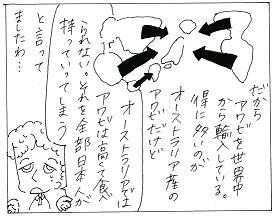 だから
アワビを世界中
から輸入している。
特に多いのが
オーストラリア産の
アワビだけど
オーストラリアでは
アワビは高くて食べ
られない。それを全部日本人が
持っていってしまう
と言って
ましたわ…